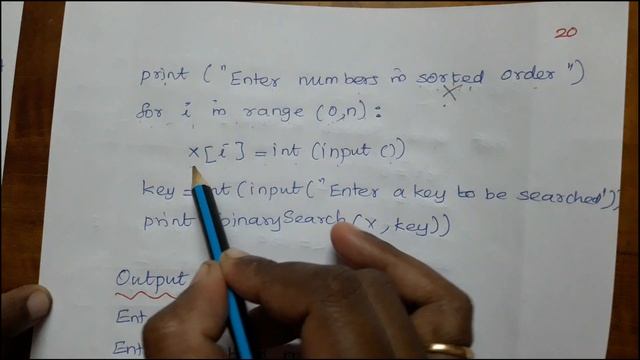 20
print ("Enter numbers in sorted order")
for i in range (0,n):
x[i] = int (input ())
key = int (input ("Enter a key to be searched"))
print binarySearch (x, key))
Output
Ent
Ent